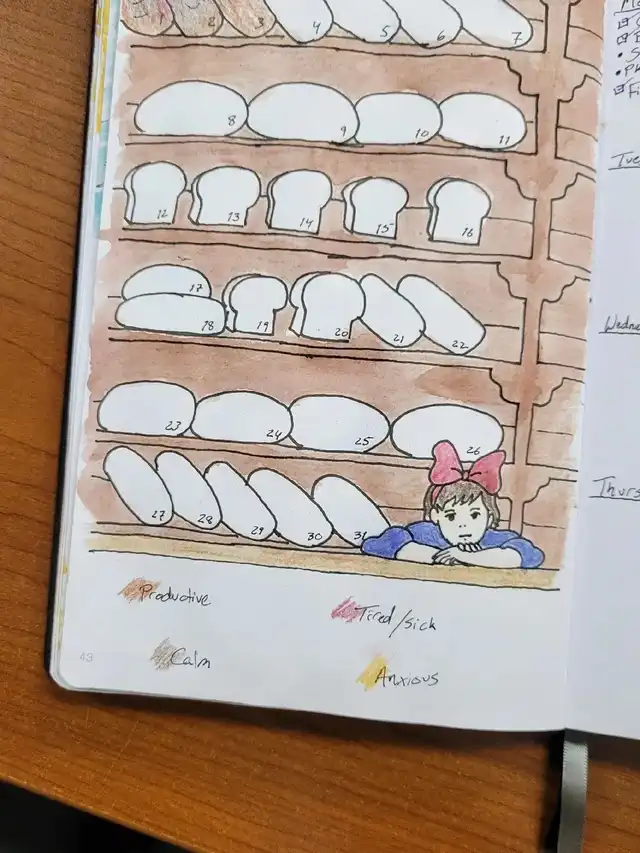 1 2 3 4 5 6 7
8 9 10 11
12 13 14 15 16
17
18 19 20 21 22
23 24 25 26
27 28 29 30 31
Productive
Tired/Sick
Calm
Anxious
43